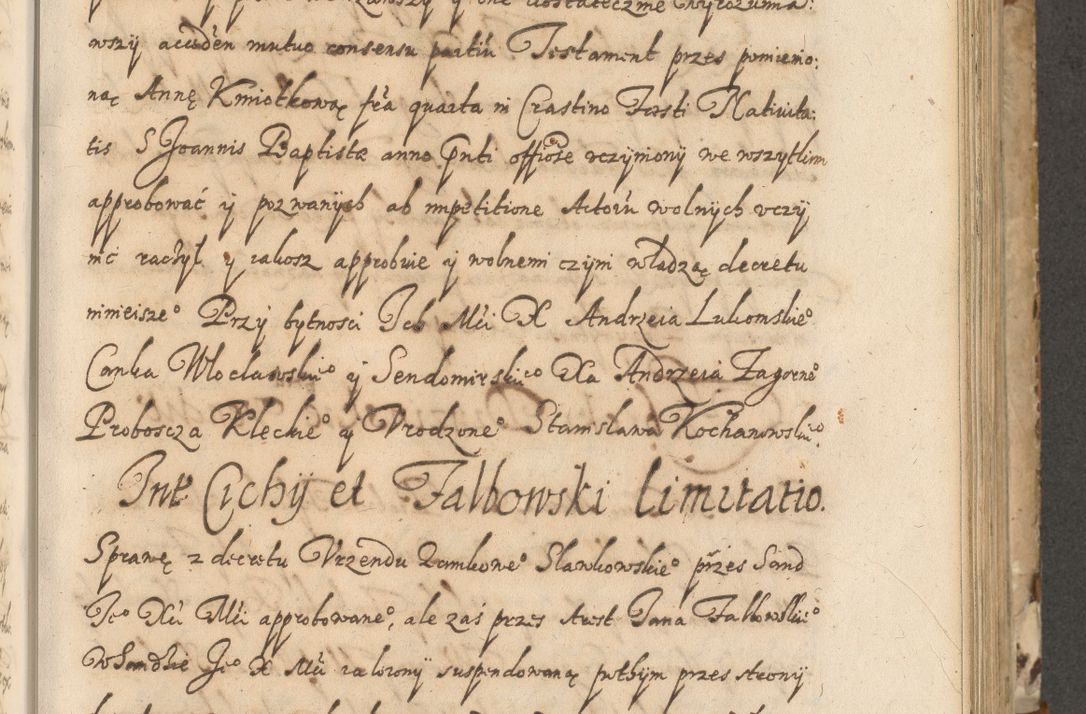 wszij acceden mutuo consensu partiu Testament przes pomienio:
ną Annę Kmiotkową fria quarta in Crastino Festi Natiuita:
tis S Joannis Baptistæ anno Pnti offiose vczyniony we wszytkim
approbować ij pozwanijch ab impetitione Actoru wolnijch vczy
nić raczył ij iakosz approbuie ij wolnemi czyni władzą decretu
ninieisze° Przij bytnosci Ich Mći X Andrzeia Lukomskie°
Canka Włocławskie° ij Sendomirskie° Xa Andrzeia Zagorne°
Proboscza Kleckie° ij Vrodzone° Stanisława Kochanowskie°
Int Cichij et Falbowski limitatio.
Sprawę z decretu Vrzendu Zamkowe° Slawkowskie° przes Sand
Je° Xći Mći approbowane°, ale zaś przes Arest Jana Falbowskie°
W Sandzie Je° X Mći założonij suspendowaną puthijm przes stronij